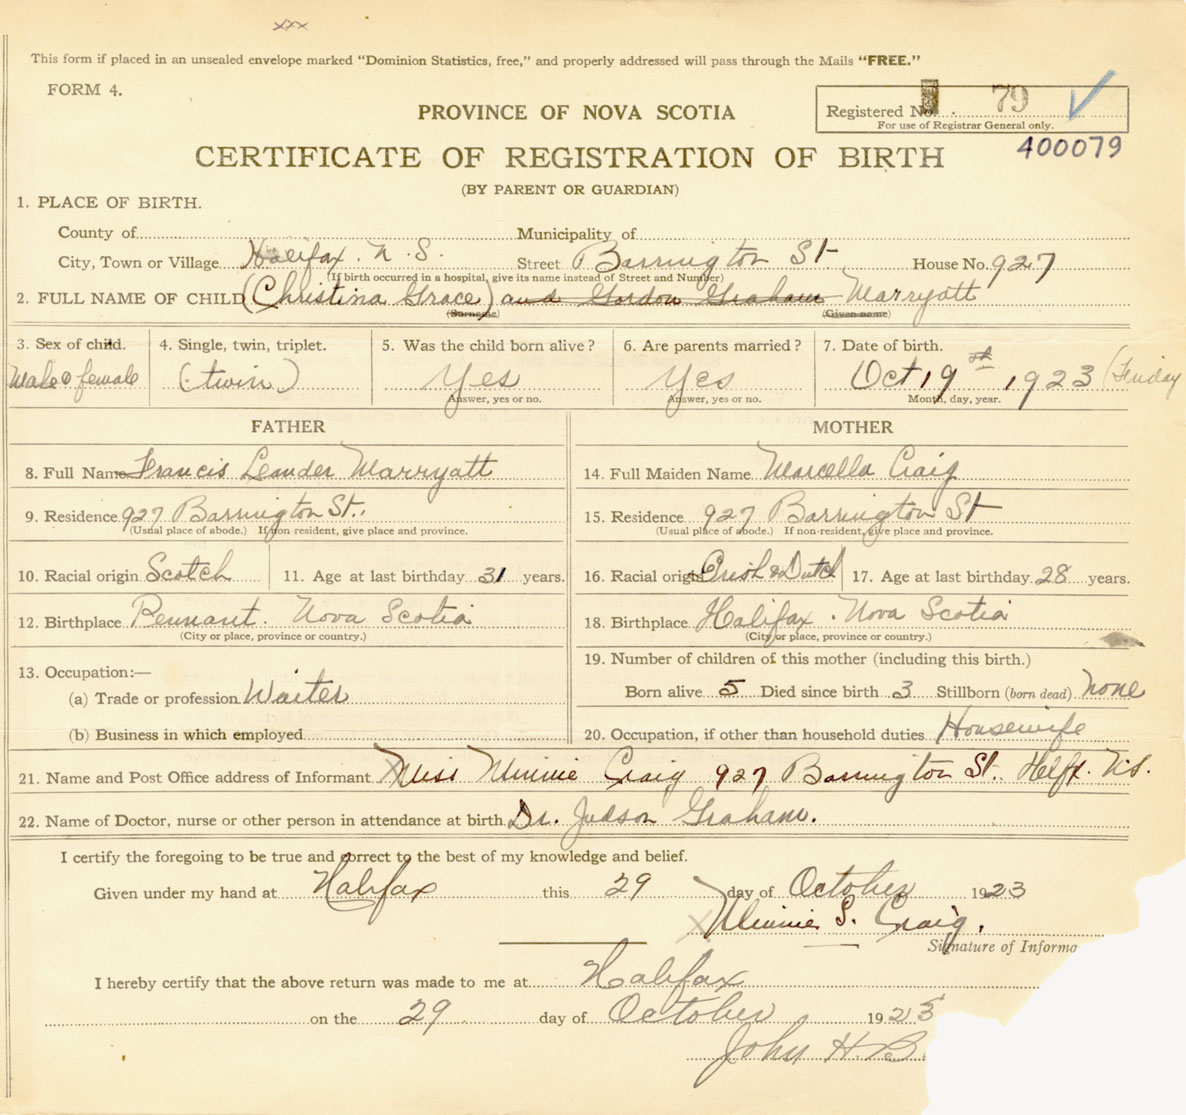 xxx
This form if placed in an unsealed envelope marked "Dominion Statistics, free," and properly addressed will pass through the Mails "FREE."
FORM 4.
Registered No. 79
For use of Registrar General only.
PROVINCE OF NOVA SCOTIA
400079
CERTIFICATE OF REGISTRATION OF BIRTH
(BY PARENT OR GUARDIAN)
1. PLACE OF BIRTH.
County of Municipality of
City, Town or Village Halifax. N. S. Street Barrington St House No. 927
(If birth occurred in a hospital, give its name instead of Street and Number)
2. FULL NAME OF CHILD (Christina Grace) and Gordon Graham Marryatt
(Surname) (Given name)
3. Sex of child. 4. Single, twin, triplet. 5. Was the child born alive? 6. Are parents married? 7. Date of birth.
Male & female (twin) Yes Yes Oct 19 st, 1923 (Friday
Answer, yes or no. Answer, yes or no. Month, day, year.
FATHER MOTHER
8. Full Name Francis Leander Marryatt 14. Full Maiden Name Marcella Craig
9. Residence 927 Barrington St. 15. Residence 927 Barrington St
(Usual place of abode.) If non-resident, give place and province. (Usual place of abode.) If non-resident, give place and province.
10. Racial origin Scotch 11. Age at last birthday 31 years. 16. Racial origin Irish & Dutch 17. Age at last birthday 28 years.
12. Birthplace Pennant. Nova Scotia 18. Birthplace Halifax. Nova Scotia
(City or place, province or country.) (City or place, province or country.)
13. Occupation:— 19. Number of children of this mother (including this birth.)
(a) Trade or profession Waiter Born alive 5 Died since birth 3 Stillborn (born dead) none
(b) Business in which employed 20. Occupation, if other than household duties Housewife
21. Name and Post Office address of Informant Miss Minnie Craig 927 Barrington St. Helfx. N.S.
22. Name of Doctor, nurse or other person in attendance at birth Dr. Judson Graham.
I certify the foregoing to be true and correct to the best of my knowledge and belief.
Given under my hand at Halifax this 29 day of October 1923
X Minnie S. Craig.
Signature of Informa
I hereby certify that the above return was made to me at Halifax
on the 29 day of October 1923
John H. B